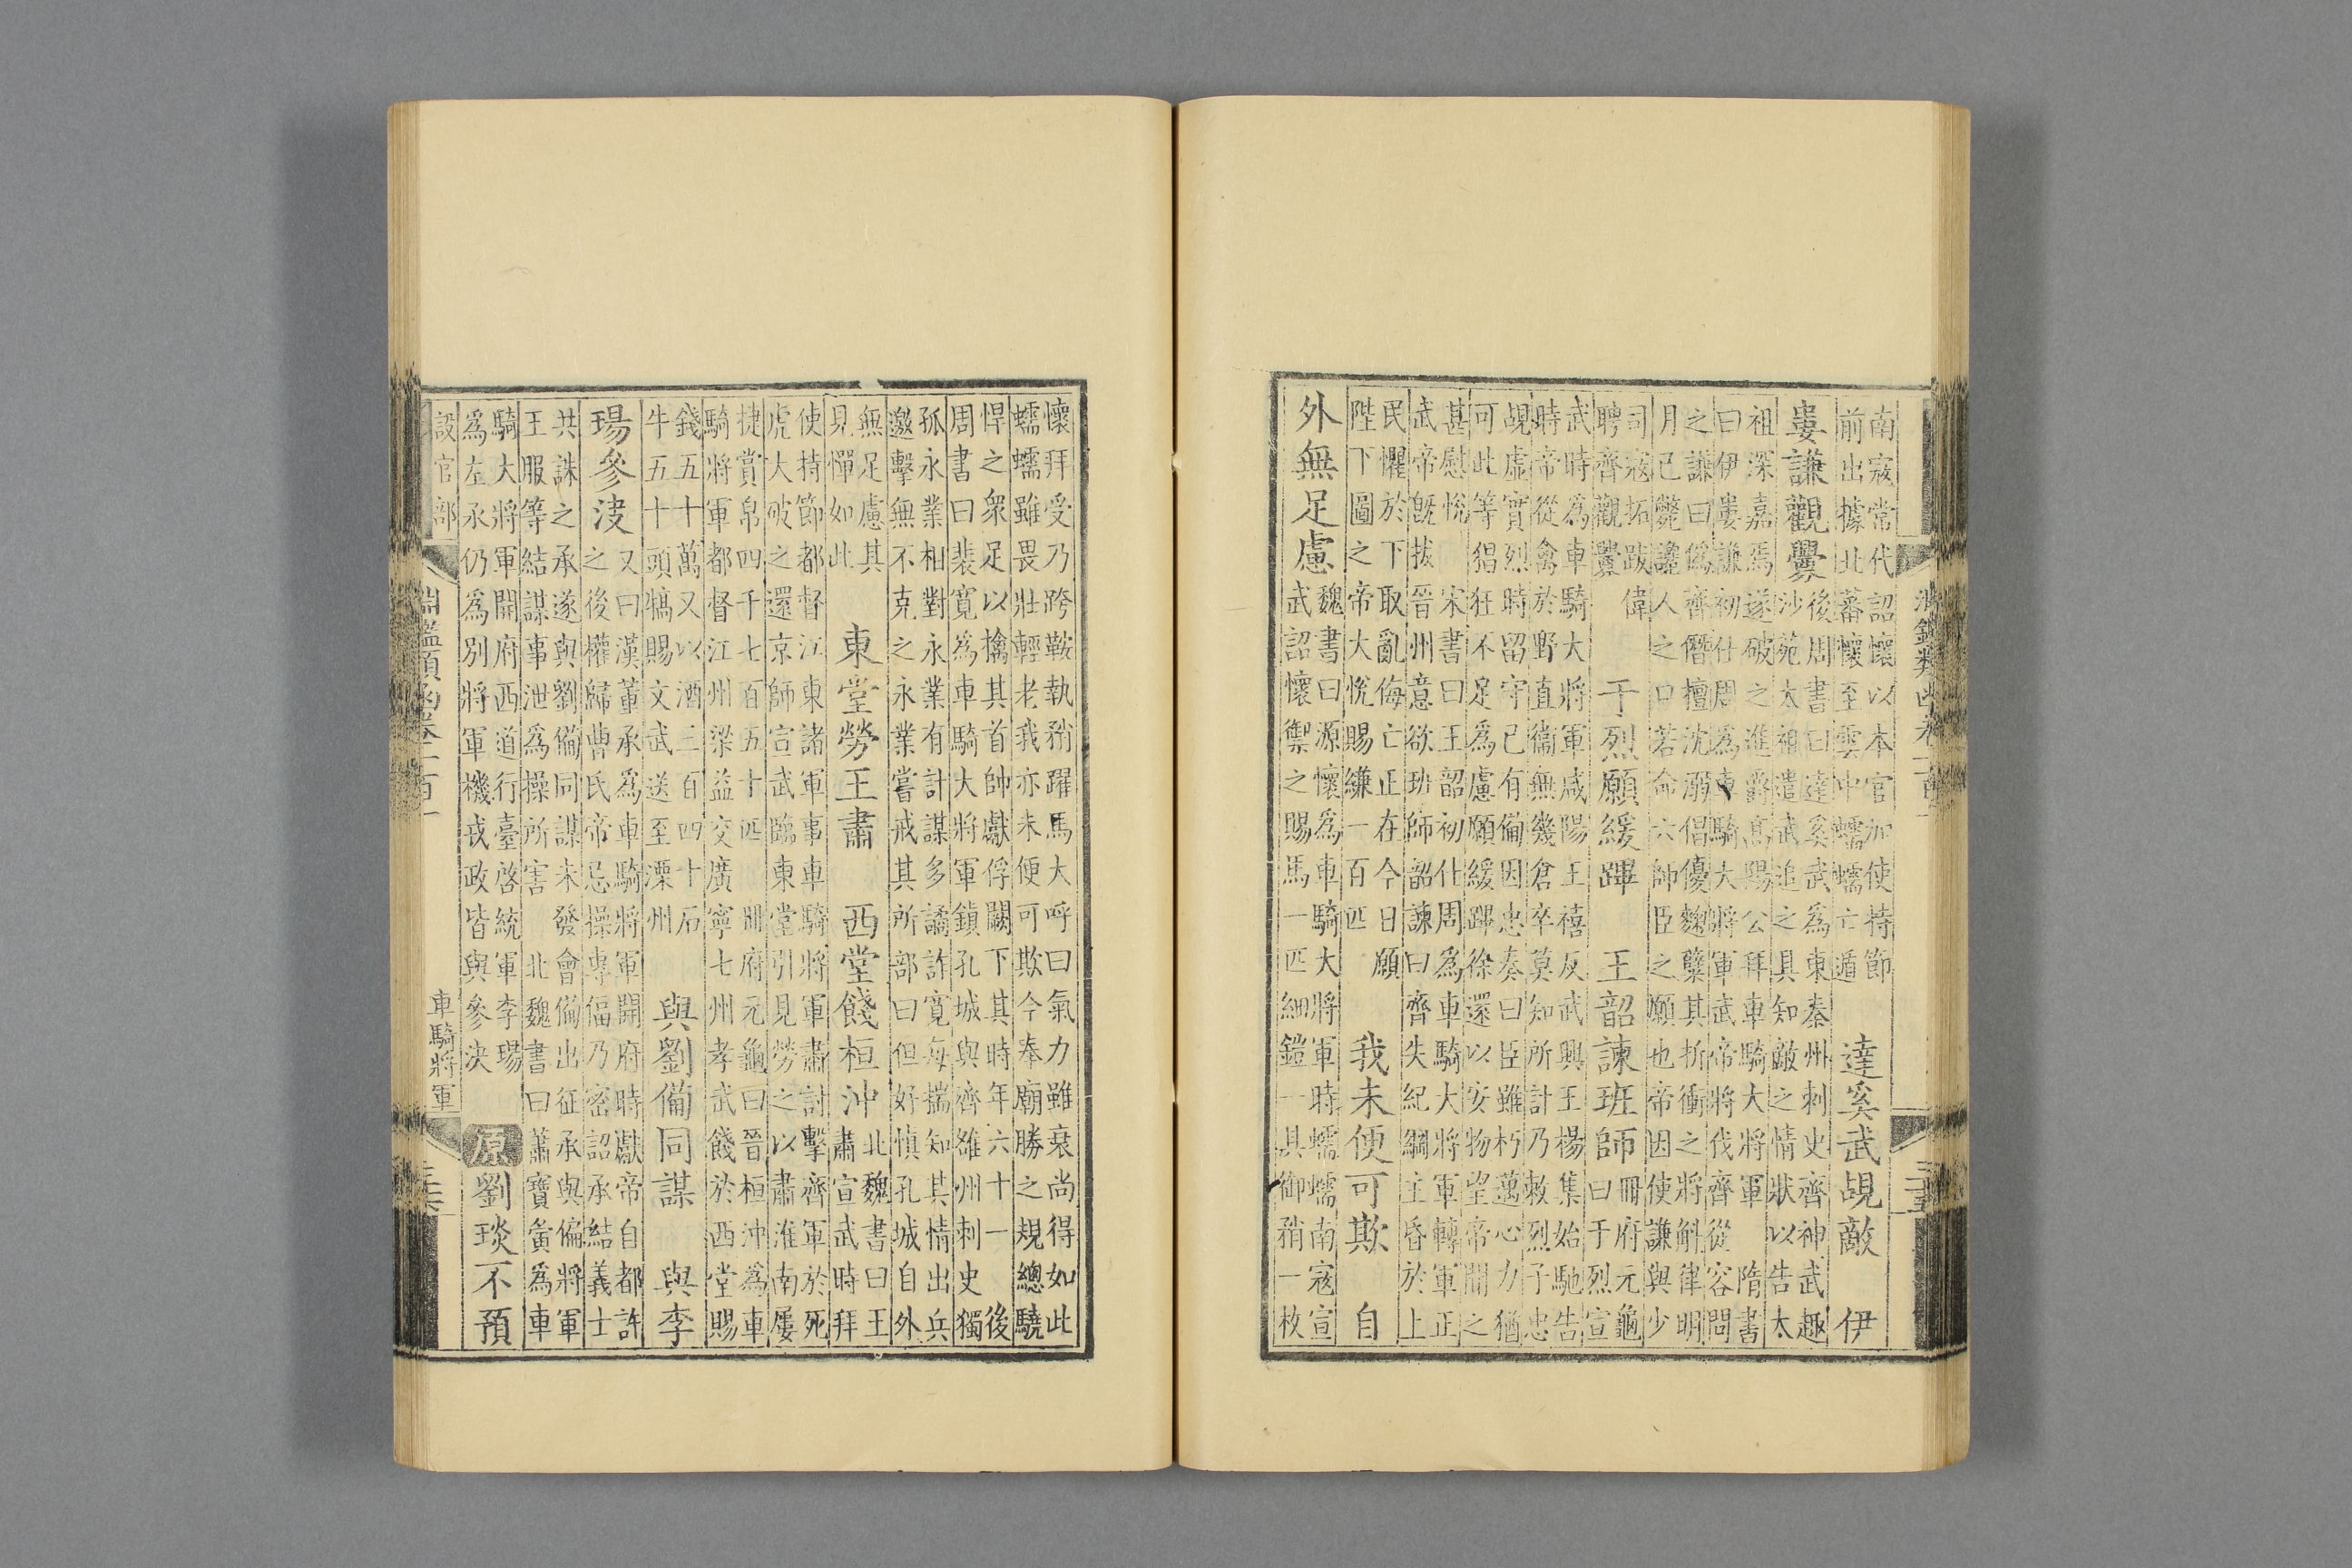 南寇常代詔懷以本官加使持節
前出據北蕃懷至雲中蠕蠕亡遁
達奚武覘敵　伊
婁謙觀釁
後周書曰達奚武為東秦州刺史齊神武趣
沙苑太祖遣武追之具知敵之情狀以告太
祖深嘉焉遂破之進爵高陽公拜車騎大將軍　隋書
曰伊婁謙初仕周為車騎大將軍武帝將伐齊從容問
之謙曰偽齊僭擅沈溺倡優麴糵其折衝之將斛律明
月已斃讒人之口若命六師臣之願也帝因使謙與少
司寇拓跋偉
聘齊觀釁
于烈願緩蹕　王韶諫班師
冊府元龜
曰于烈宣
武時為車騎大將軍咸陽王禧反武興王楊集始馳告
時帝從禽於野直衞無幾倉卒莫知所計乃敕烈子忠
覘虛實烈時留守已有備因忠奏曰臣雖朽邁心力猶
可此等猖狂不足為慮願緩蹕徐還以安物望帝聞之
甚慰悅　宋書曰王韶初仕周為車騎大將軍轉軍正
武帝旣拔晉州意欲班師韶諫曰齊失紀綱主昏於上
民懼於下取亂侮亡正在今日願
陛下圖之帝大悅賜縑一百匹
我未便可欺　自
外無足慮
魏書曰源懷為車騎大將軍時蠕蠕南寇宣
武詔懷禦之賜馬一匹細鎧一具御矟一枚
懷拜受乃跨鞍執矟躍馬大呼曰氣力雖衰尚得如此
蠕蠕雖畏壯輕老我亦未便可欺今奉廟勝之規總驍
悍之衆足以擒其首帥獻俘闕下其時年六十一　後
周書曰裴寬為車騎大將軍鎮孔城與齊雒州刺史獨
孤永業相對永業有計謀多譎詐寬每揣知其情出兵
邀擊無不克之永業嘗戒其所部曰但好慎孔城自外
無足慮其
見憚如此
東堂勞王肅　西堂餞桓沖
北魏書曰王
肅宣武時拜
使持節都督江東諸軍事車騎將軍肅討擊齊軍於死
虎大破之還京師宣武臨東堂引見勞之以肅淮南屢
捷賞帛四千七百五十匹　冊府元龜曰晉桓沖為車
騎將軍都督江州梁益交廣寧七州孝武餞於西堂賜
錢五十萬又以酒三百四十石
牛五十頭犒賜文武送至溧州
與劉備同謀　與李
瑒參決
又曰漢董承為車騎將軍開府時獻帝自都許
之後權歸曹氏帝忌操專偪乃密詔承結義士
共誅之承遂與劉備同謀未發會備出征承與偏將軍
王服等結謀事泄為操所害　北魏書曰蕭寶夤為車
騎大將軍開府西道行臺啓統軍李瑒
為左承仍為別將軍機戎政皆與參決
原劉琰不預
設官部　車騎將軍